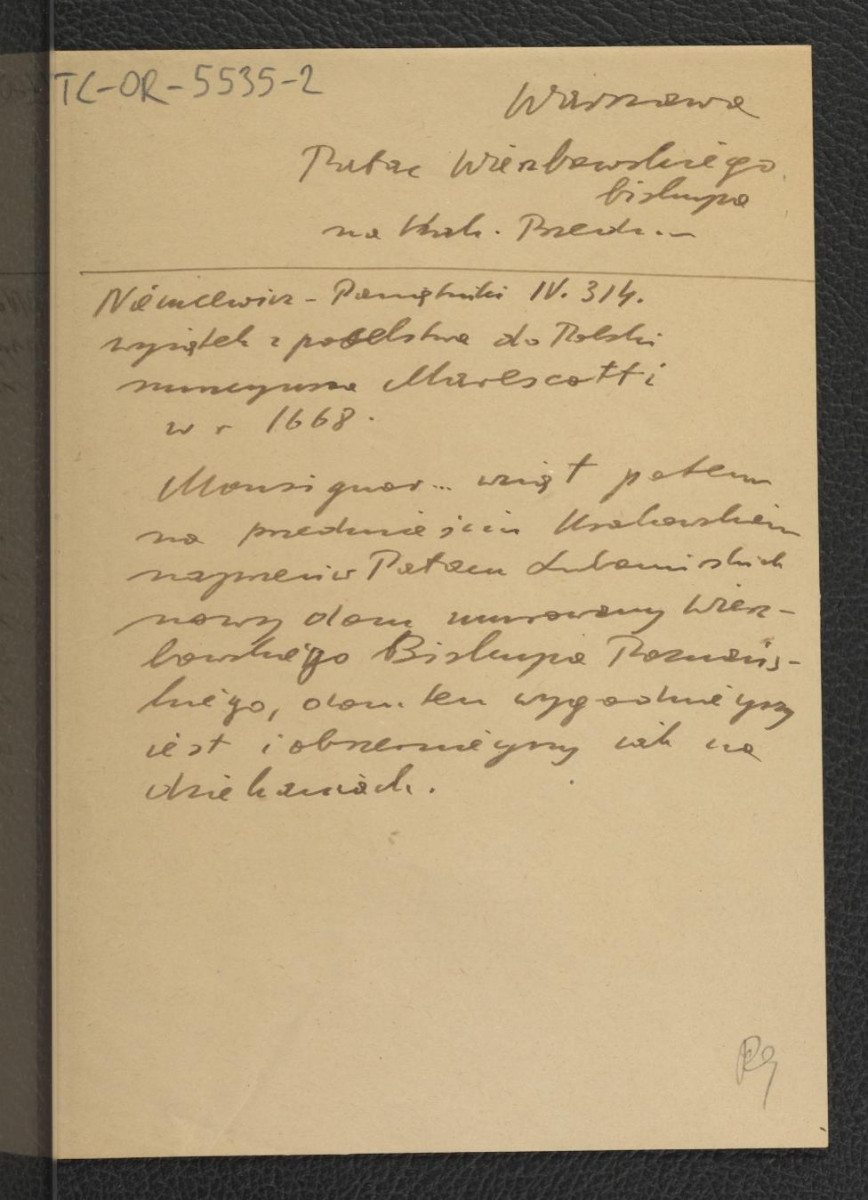 TC-OR-5535-2
Warszawa
Pałac Wierzbowskiego
biskupa
na Krak. Przedm.
Niemcewicz - Pamiętniki IV. 314.
wyjątek z poselstwa do Polski
nuncyusza Marescotti
w r 1668.
Monsignor... wziął potem
na przedmieściu Krakowskiem
naprzeciw Pałacu Lubomirskich
nowy dom murowany Wierz-
bowskiego Biskupa Poznańs-
kiego, dom ten wygodnieyszy
iest i obszernieyszy iak na
dziekaniach.